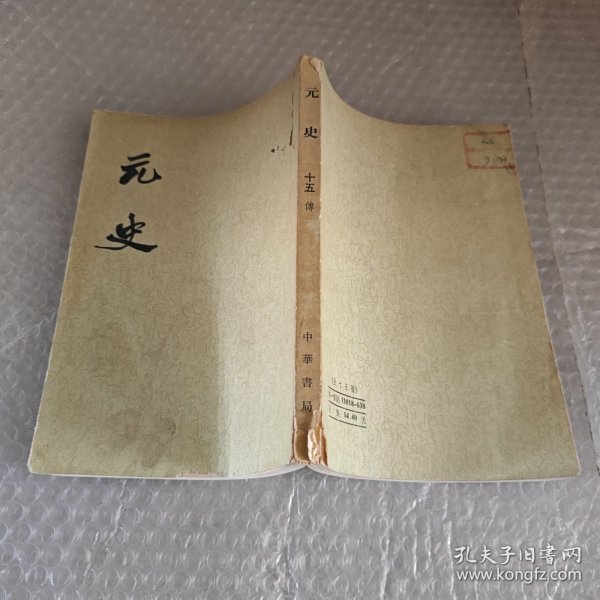 元史
元史
十五
傳
中華書局
(全十五冊)
11018·638
14.40 元
孔夫子旧书网
www.kongfz.com